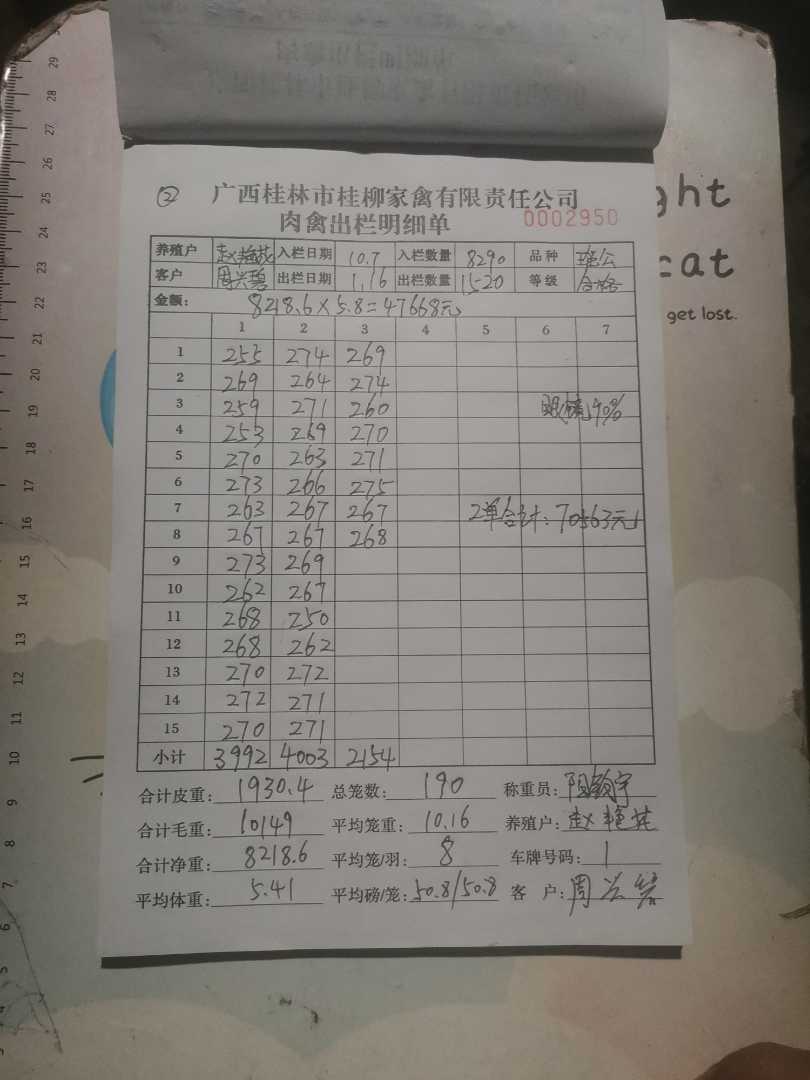 ② 广西桂林市桂柳家禽有限责任公司
肉禽出栏明细单 0002950
养殖户 赵艳花 入栏日期 10.7 入栏数量 8290 品种
客户 周兴碧 出栏日期 1.16 出栏数量 1520 等级 合格
金额: 8218.6×5.8=47668元
1 2 3 4 5 6 7
1 255 274 269
2 269 264 274
3 259 271 260 90%
4 253 269 270
5 270 263 271
6 273 266 275
7 263 267 267 2单合计:70563元
8 267 267 268
9 273 269
10 262 267
11 268 250
12 268 262
13 270 272
14 272 271
15 270 271
小计 3992 4003 2154
合计皮重: 1930.4 总笼数: 190 称重员:
合计毛重: 10149 平均笼重: 10.16 养殖户: 赵艳花
合计净重: 8218.6 平均笼/羽: 8 车牌号码: 1
平均体重: 5.41 平均磅/笼: 50.8/50.8 客 户: 周兴碧
ght
cat
get lost.
29
28
27
26
25
24
23
22
21
20
19
18
17
16
15
14
13
12
11
10
9
8
7
6
5
4